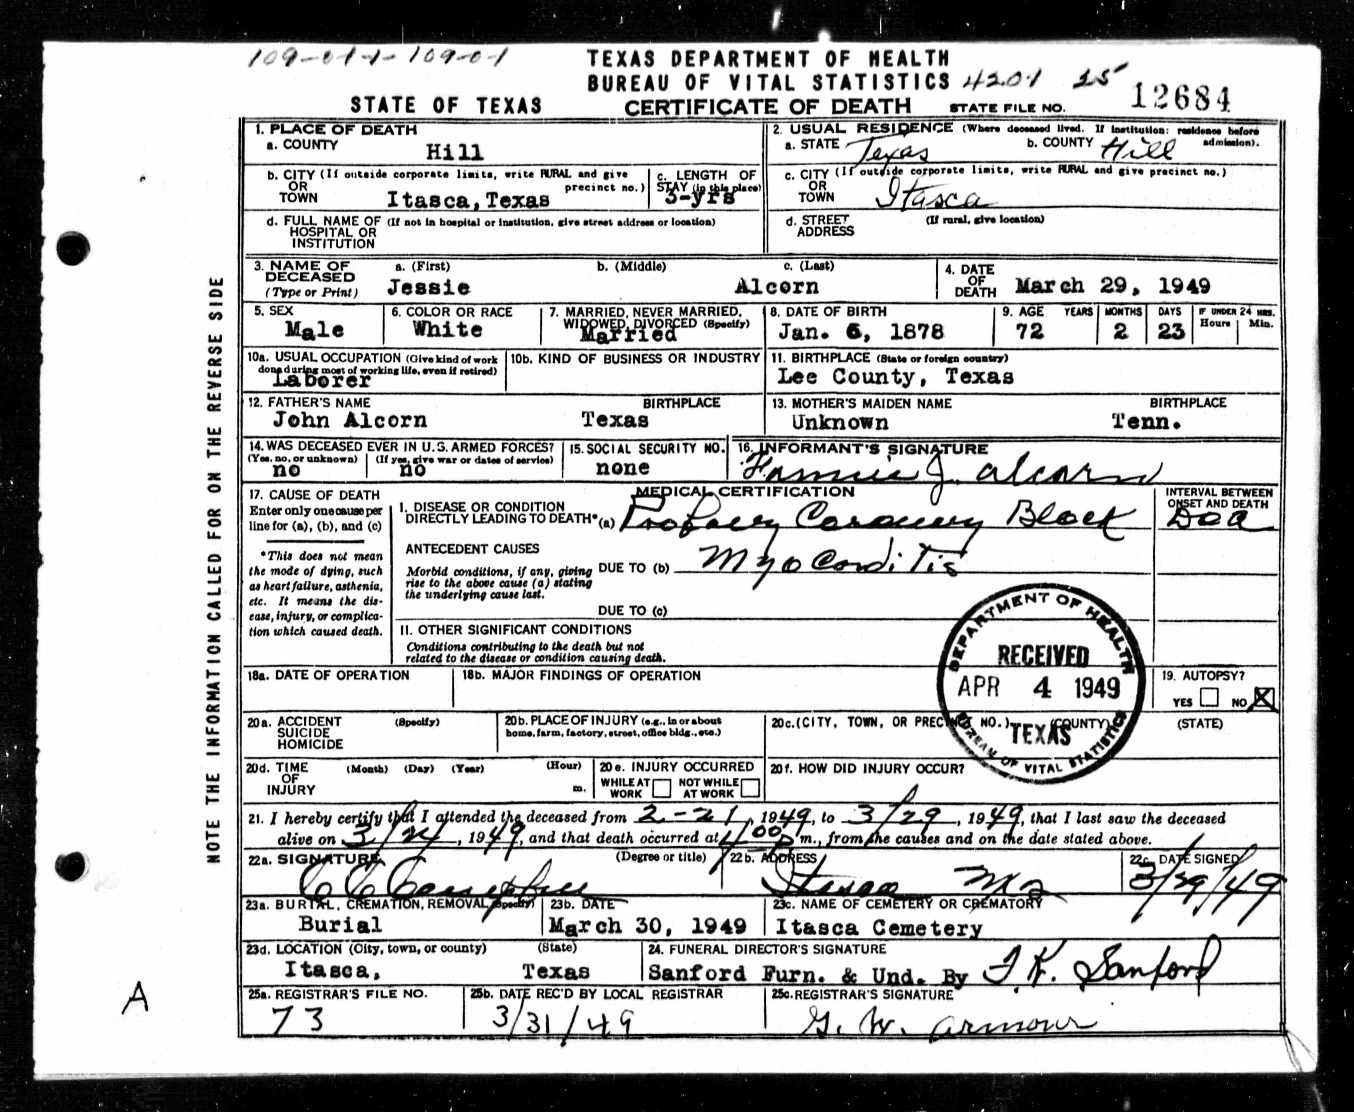 109-01-1-109-01
TEXAS DEPARTMENT OF HEALTH
BUREAU OF VITAL STATISTICS 4201 25
STATE OF TEXAS CERTIFICATE OF DEATH STATE FILE NO. 12684
NOTE THE INFORMATION CALLED FOR ON THE REVERSE SIDE
1. PLACE OF DEATH
a. COUNTY Hill
2. USUAL RESIDENCE (Where deceased lived. If institution: residence before admission).
a. STATE Texas b. COUNTY Hill
b. CITY (If outside corporate limits, write RURAL and give precinct no.)
OR
TOWN Itasca, Texas
c. LENGTH OF
STAY (in this place)
3-yrs
c. CITY (If outside corporate limits, write RURAL and give precinct no.)
OR
TOWN Itasca
d. FULL NAME OF (If not in hospital or institution, give street address or location)
HOSPITAL OR
INSTITUTION
d. STREET (If rural, give location)
ADDRESS
3. NAME OF DECEASED (Type or Print)
a. (First) b. (Middle) c. (Last)
Jessie Alcorn
4. DATE OF DEATH March 29, 1949
5. SEX
Male
6. COLOR OR RACE
White
7. MARRIED, NEVER MARRIED,
WIDOWED, DIVORCED (Specify)
Married
8. DATE OF BIRTH
Jan. 6, 1878
9. AGE YEARS MONTHS DAYS IF UNDER 24 HRS. Hours Min.
72 2 23
10a. USUAL OCCUPATION (Give kind of work
done during most of working life, even if retired)
Laborer
10b. KIND OF BUSINESS OR INDUSTRY
11. BIRTHPLACE (State or foreign country)
Lee County, Texas
12. FATHER'S NAME BIRTHPLACE
John Alcorn Texas
13. MOTHER'S MAIDEN NAME BIRTHPLACE
Unknown Tenn.
14. WAS DECEASED EVER IN U.S. ARMED FORCES?
(Yes, no, or unknown) (If yes, give war or dates of service)
no no
15. SOCIAL SECURITY NO.
none
16. INFORMANT'S SIGNATURE
J. Alcorn
17. CAUSE OF DEATH
Enter only one cause per
line for (a), (b), and (c)
*This does not mean
the mode of dying, such
as heart failure, asthenia,
etc. It means the dis-
ease, injury, or complica-
tion which caused death.
MEDICAL CERTIFICATION
INTERVAL BETWEEN
ONSET AND DEATH
I. DISEASE OR CONDITION
DIRECTLY LEADING TO DEATH* (a) Coronary Block DOA
ANTECEDENT CAUSES
Morbid conditions, if any, giving
rise to the above cause (a) stating
the underlying cause last.
DUE TO (b) Myocarditis
DUE TO (c)
II. OTHER SIGNIFICANT CONDITIONS
Conditions contributing to the death but not
related to the disease or condition causing death.
DEPARTMENT OF HEALTH
RECEIVED
APR 4 1949
TEXAS
BUREAU OF VITAL STATISTICS
18a. DATE OF OPERATION
18b. MAJOR FINDINGS OF OPERATION
19. AUTOPSY?
YES NO X
20a. ACCIDENT (Specify)
SUICIDE
HOMICIDE
20b. PLACE OF INJURY (e.g., in or about
home, farm, factory, street, office bldg., etc.)
20c. (CITY, TOWN, OR PRECINCT NO.) (COUNTY) (STATE)
20d. TIME (Month) (Day) (Year) (Hour)
OF
INJURY m.
20e. INJURY OCCURRED
WHILE AT WORK NOT WHILE AT WORK
20f. HOW DID INJURY OCCUR?
21. I hereby certify that I attended the deceased from 2-21, 1949, to 3/29, 1949, that I last saw the deceased
alive on 3/24, 1949, and that death occurred at 1:00 P m., from the causes and on the date stated above.
22a. SIGNATURE (Degree or title)
22b. ADDRESS
Itasca
22c. DATE SIGNED
3/29/49
23a. BURIAL, CREMATION, REMOVAL (Specify)
Burial
23b. DATE
March 30, 1949
23c. NAME OF CEMETERY OR CREMATORY
Itasca Cemetery
23d. LOCATION (City, town, or county) (State)
Itasca, Texas
24. FUNERAL DIRECTOR'S SIGNATURE
Sanford Furn. & Und. By J. K. Sanford
25a. REGISTRAR'S FILE NO.
73
25b. DATE REC'D BY LOCAL REGISTRAR
3/31/49
25c. REGISTRAR'S SIGNATURE
G. W. Armour
A